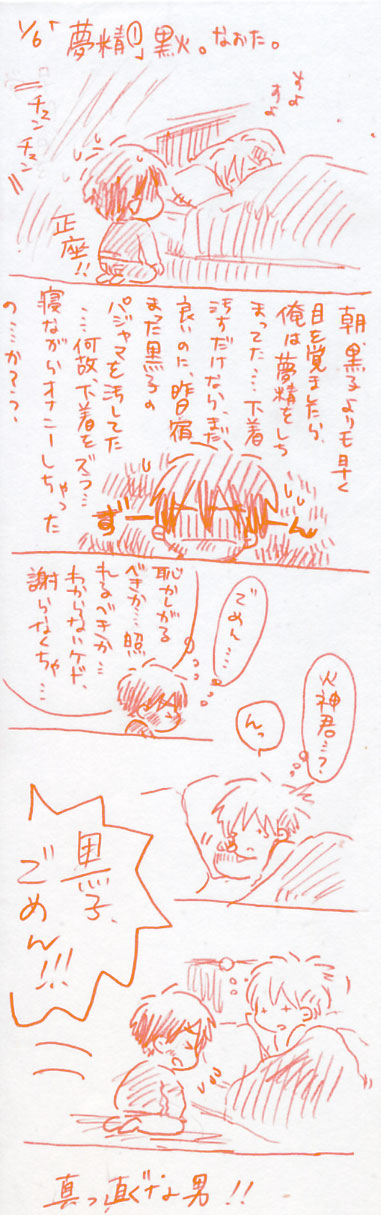 1/6「夢精①」黒火。なおた。
すよ
すよ
チュン
チュン
正座!!
朝、黒子よりも早く
目を覚ましたら、
俺は夢精をしち
まってた…下着
汚すだけなら、まだ、
良いのに、昨日宿
まった黒子の
パジャマを汚してた
…何故、下着をズラ…
寝ながらオナニーしちゃった
の…かろう、
ずーーん
恥かしがる
べきか…照
れるべきか…
わからないケド、
謝らなくちゃ…
ごめん…
火神君…?
んっ
黒子、
ごめん!!!
真っ直ぐな男!!